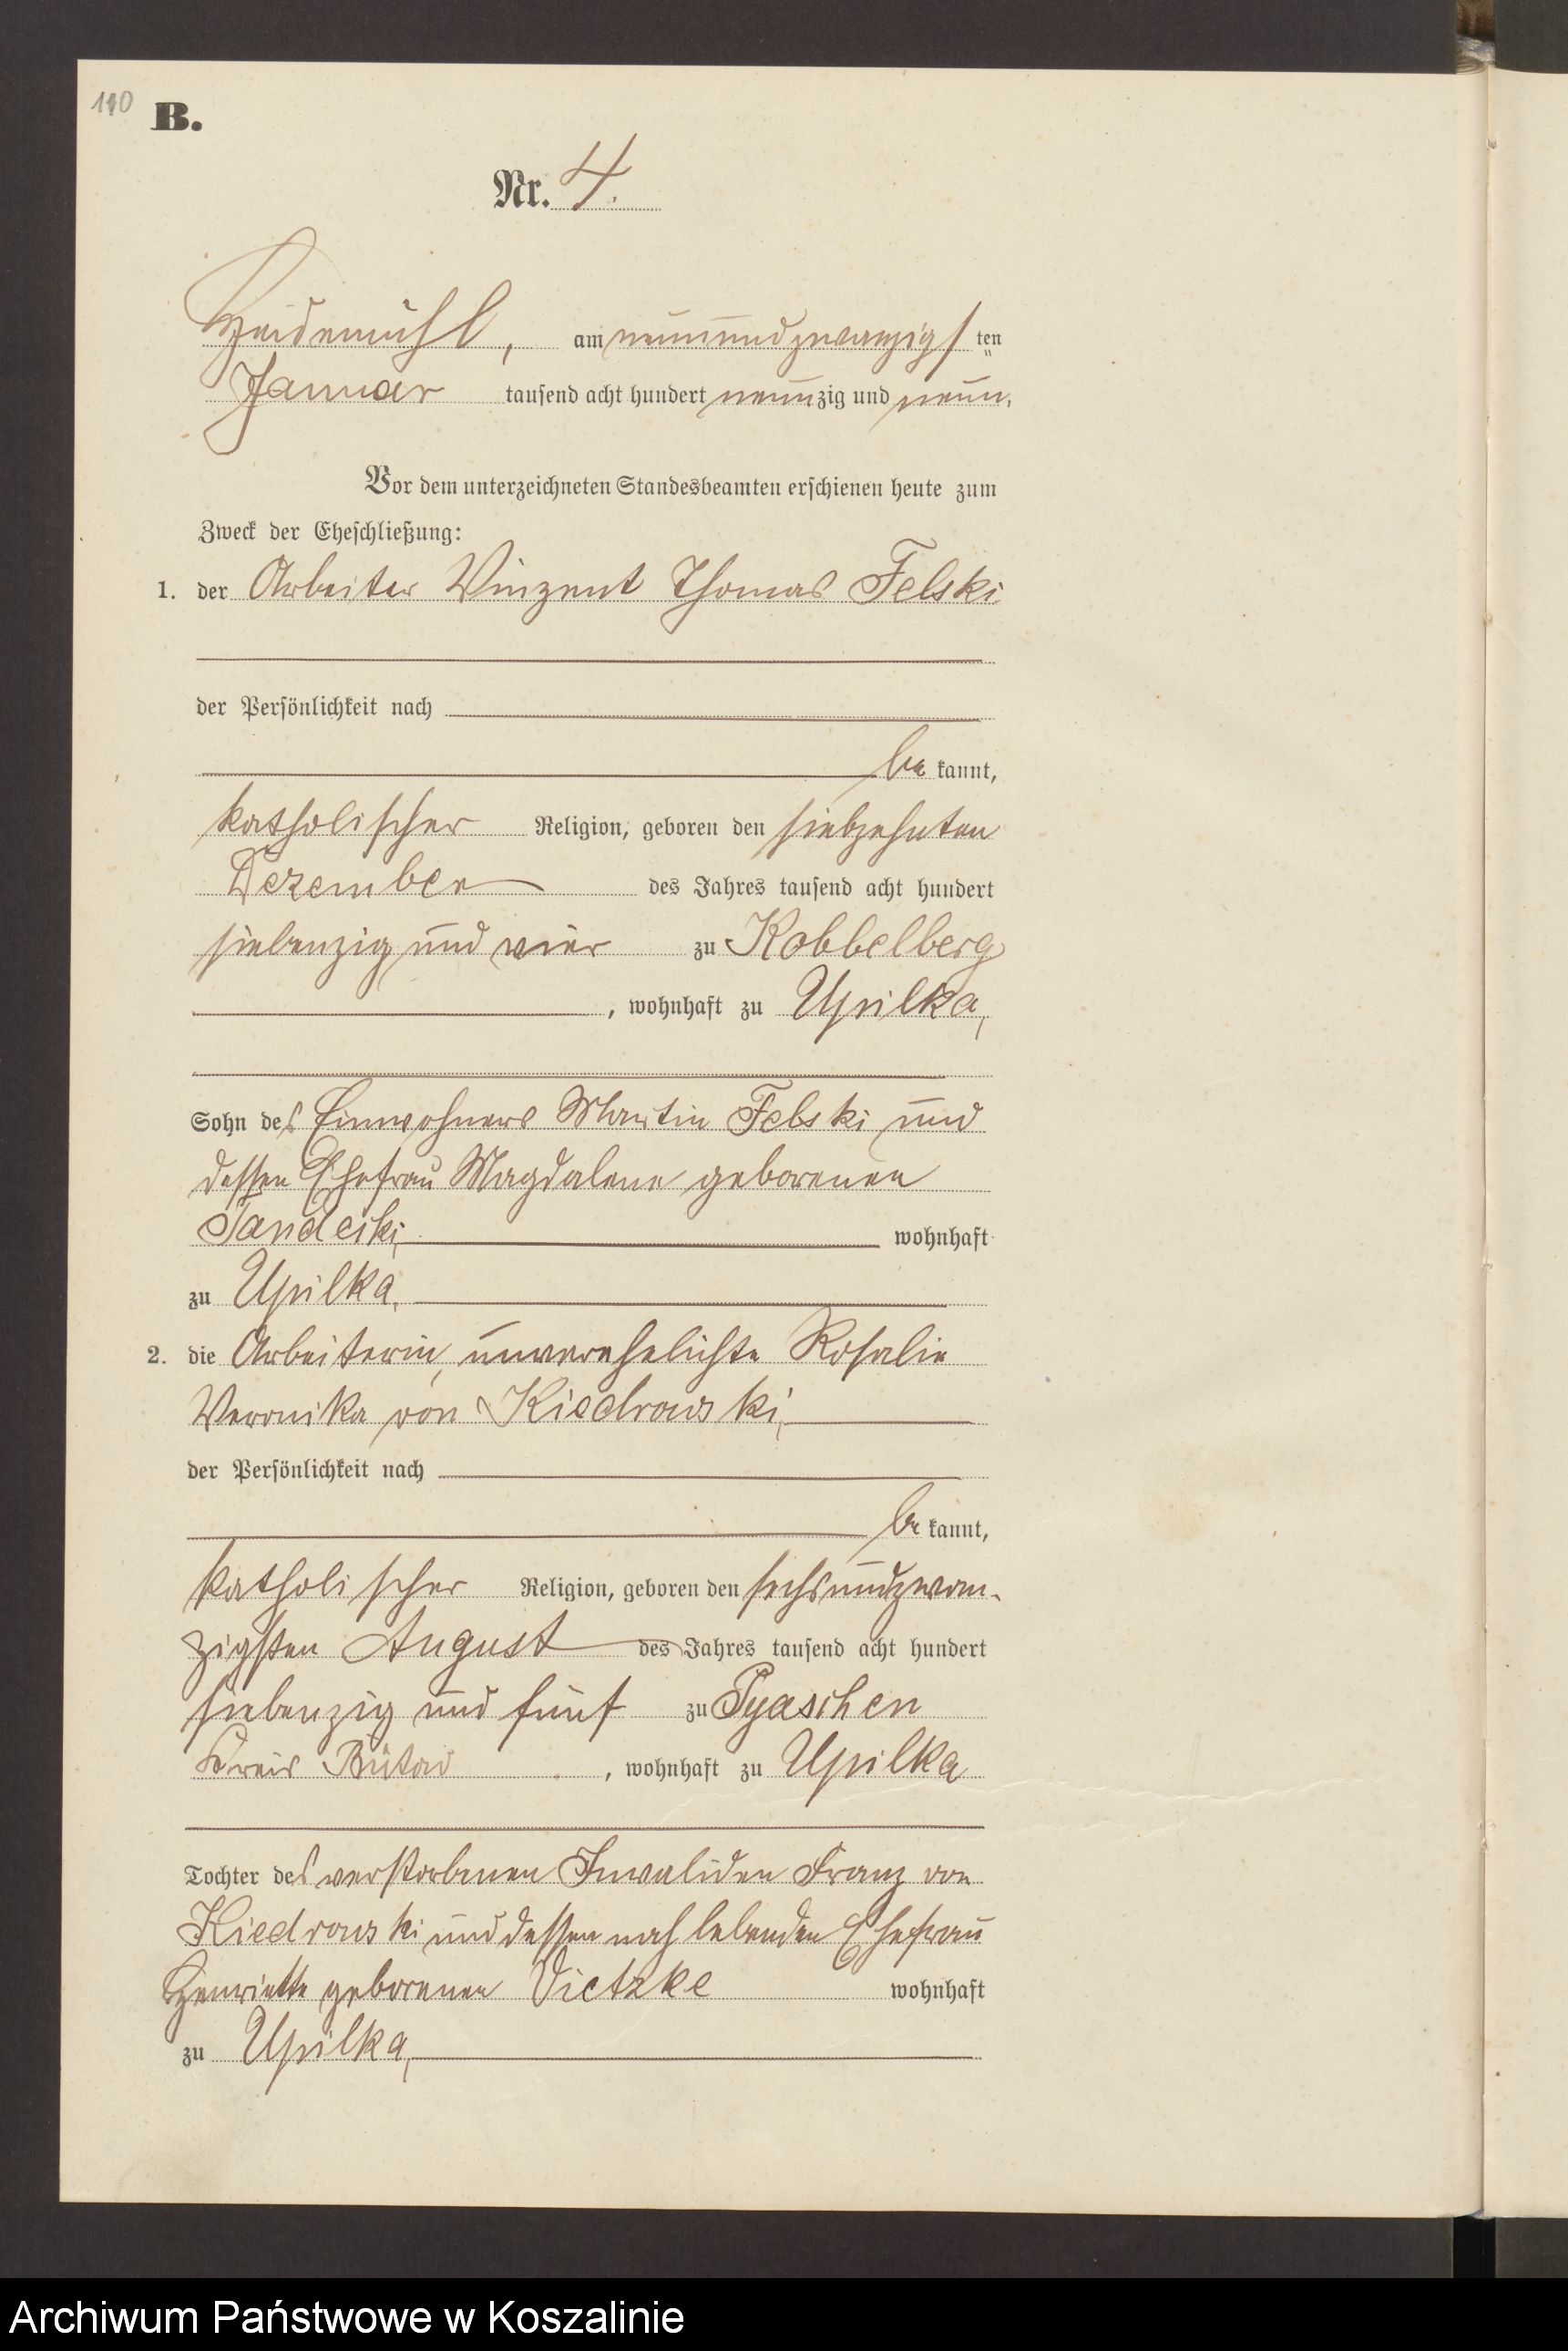 110
B.
Nr. 4.
Heidemühl, am neunundzwanzigsten
Januar tausend acht hundert neunzig und neun.
Vor dem unterzeichneten Standesbeamten erschienen heute zum
Zweck der Eheschließung:
1. der Arbeiter Vinzent Thomas Felski
der Persönlichkeit nach
be kannt,
katholischer Religion, geboren den siebzehnten
Dezember des Jahres tausend acht hundert
siebenzig und vier zu Kobbelberg
, wohnhaft zu Upilka,
Sohn des Einwohners Martin Felski und
dessen Ehefrau Magdalene geborenen
wohnhaft
zu Upilka.
2. die Arbeiterin, unverehelichte Rosalie
Veronika von Kiedrowski,
der Persönlichkeit nach
be kannt,
katholischer Religion, geboren den sechsundzwan-
zigsten August des Jahres tausend acht hundert
siebenzig und fünf zu Pyaschen
Kreis Bütow, wohnhaft zu Upilka
Tochter des verstorbenen Invaliden Franz von
Kiedrowski und dessen noch lebenden Ehefrau
Henriette geborenen Vietzke wohnhaft
zu Upilka,
Archiwum Państwowe w Koszalinie